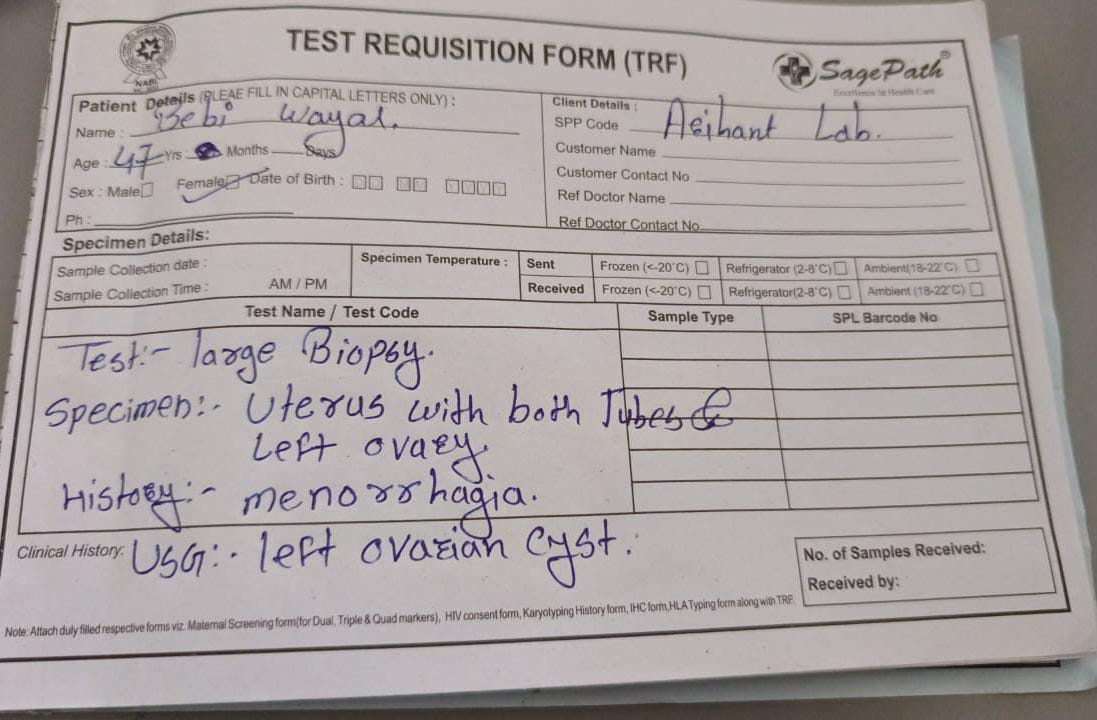 NABL
TEST REQUISITION FORM (TRF)
SagePath®
Excellence In Health Care
Patient Details (PLEAE FILL IN CAPITAL LETTERS ONLY) :
Name : Bebi Wayal.
Age : 47 Yrs Months Days
Sex : Male Female Date of Birth :
Ph :
Client Details :
SPP Code Arihant Lab.
Customer Name
Customer Contact No
Ref Doctor Name
Ref Doctor Contact No
Specimen Details:
Sample Collection date :
Sample Collection Time : AM / PM
Specimen Temperature : Sent Frozen (<-20°C) Refrigerator (2-8°C) Ambient(18-22°C)
Received Frozen (<-20°C) Refrigerator(2-8°C) Ambient (18-22°C)
Test Name / Test Code Sample Type SPL Barcode No
Test:- large Biopsy.
Specimen:- Uterus with both Tubes &
Left ovary.
History:- menorrhagia.
Clinical History: USG:- left ovarian cyst.
No. of Samples Received:
Received by:
Note: Attach duly filled respective forms viz. Maternal Screening form(for Dual, Triple & Quad markers), HIV consent form, Karyotyping History form, IHC form,HLA Typing form along with TRF.